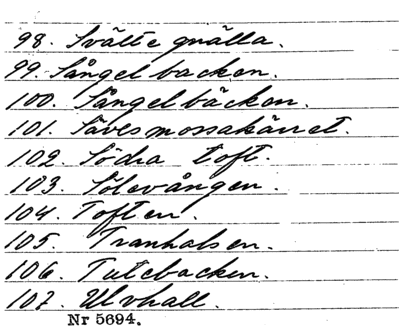 98. Svälte gnälla.
99. Sångel backen.
100. Sångel bäcken.
101. Säves mossakärret.
102. Södra toft.
103. Sölevången.
104. Toften.
105. Tranhalsen.
106. Tutebacken.
107. Ulvhall.
Nr 5694.